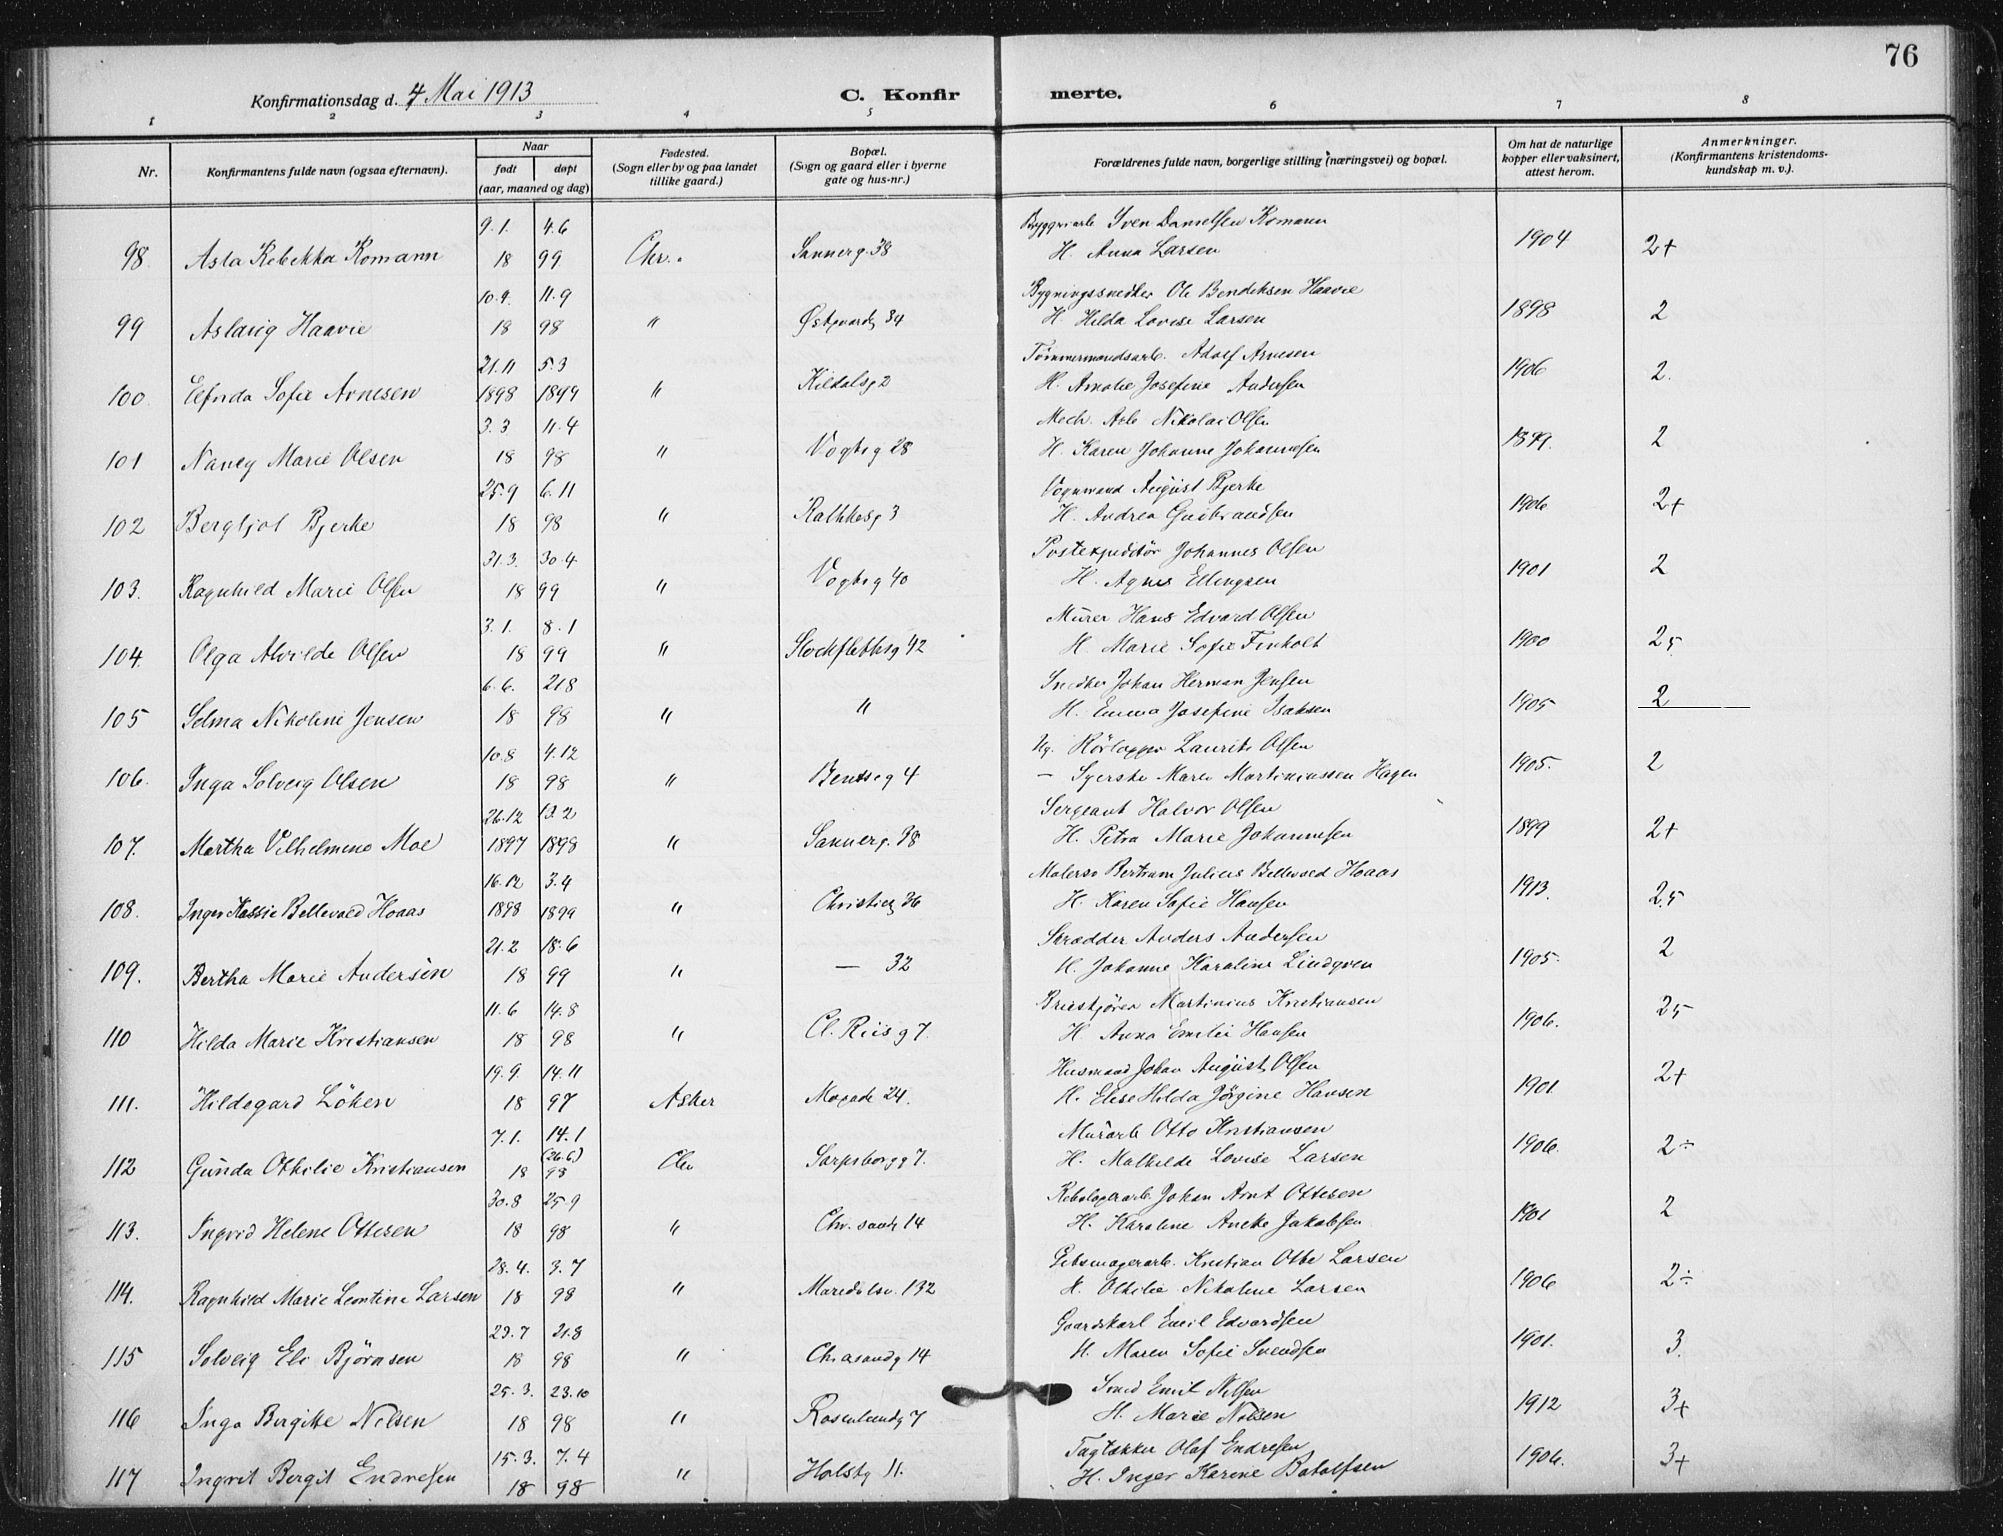 76
Konfirmationsdag d. 4 Mai 1913
C. Konfirmerte.
1 2 3 4 5 6 7 8
Nr.
Konfirmantens fulde navn (ogsaa efternavn).
Naar
født døpt
(aar, maaned og dag)
Fødested.
(Sogn eller by og paa landet
tillike gaard.)
Bopæl.
(Sogn og gaard eller i byerne
gate og hus-nr.)
Forældrenes fulde navn, borgerlige stilling (næringsvei) og bopæl.
Om hat de naturlige
kopper eller vaksinert,
attest herom.
Anmerkninger.
(Konfirmantens kristendoms-
kundskap m. v.).
9.1. 4.6 Sven Danielsen Komann
98. Asta Rebekka Komann 18 99 Chr. Sannerg. 38 H. Anna Larsen 1904 2+
10.9. 11.9 Bygningssnedker Ole Bendiksen Haavie
99 Aslaug Haavie 18 98 " 34 H. Hilda Lovise Larsen 1898 2
21.11 5.3 Tømmermandsarb. Adolf Arnesen
100. Elfrida Sofie Arnesen 1898 1899 " Kildalsg 2 H. Amalie Josefine Andersen 1906 2.
3.3 11.4 Mech. Arb Nikolai Olsen
101 Nancy Marie Olsen 18 98 " Vogtsg 28 H. Karen Johanne Johannesen 1899. 2
25.9 6.11 Vognmand August Bjerke
102 Bergljot Bjerke 18 98 " Rathkesg 3 H. Andrea Gulbrandsen 1906 2+
31.3. 30.4 Postexpeditør Johannes Olsen
103. Ragnhild Marie Olsen 18 99 " Vogtsg 40 H. Agnes Ellingsen 1901 2
3.1. 8.1 Murer Hans Edvard Olsen
104. Olga Alvilde Olsen 18 99 " Stockflethsg 42 H. Marie Sofie Finholt 1900 2,5
6.6. 21.8 Snedker Johan Herman Jensen
105 Selma Nikoline Jensen 18 98 " " H. Emma Josefine Isaksen 1905 2
10.8 4.12 Ug. Laurits Olsen
106. Inga Solveig Olsen 18 98 " Bentseg 4 – Syerske Maren Martiniussen Hagen 1905. 2
26.12 13.2 Sergeant Halvor Olsen
107. Martha Vilhelmine Moe 1897 1898 " Sannerg. 38 H. Petra Marie Johannesen 1899 2+
16.12 3.4 Malersv Bertram Julius Bellevold Hoaas
108. Inger Kassie Bellevold Hoaas 1898 1899 " Christieg 36 H. Karen Sofie Hansen 1913. 2,5
21.2 18.6 Skrædder Anders Andersen
109. Bertha Marie Andersen 18 99 " — 32 H. Johanne Karoline Lindqven 1905. 2
11.6 14.8 Martinius Kristiansen
110 Hilda Marie Kristiansen 18 98 " Cl. Riisg 7. H. Anna Emilie Hansen 1906. 2,5
19.9 14.11 Husmand Johan August Olsen
111. Hildegard Löken 18 97 Asker 24. H. Elise Hilda Jörgine Hansen 1901 2+
7.1. 14.1 Murarb Otto Kristiansen
(26.6)
112 Gunda Othilie Kristiansen 18 98 Chr Sarpsborgg 7. H. Mathilde Lovise Larsen 1906. 2÷
30.8 25.9 Johan Arnt Ottesen
113. Ingrid Helene Ottesen 18 98 " Chr. sandg 14 H. Karoline Aneke Jakobsen 1901 2
28.4. 3.7 Gibsmagerarb. Kristian Otto Larsen
114. Ragnhild Marie Leontine Larsen 18 98 " Maridalsv. 132 H. Othilie Nikoline Larsen 1906 2÷
29.7 21.8 Gaardskarl Emil Edvardsen
115 Solveig Eli Björnsen 18 98 " Chr.asandg 14 H. Maren Sofie Svendsen 1901. 3.
25.3. 23.10 Smed Emil Nilsen
116 Inga Birgitte Nilsen 18 98 " Rosenlundg 7 H. Marie Nilsen 1912 3+
15.3. 7.4 Tagtækker Olaf Endresen
117 Ingrit Bergit Endresen 18 98 " Holstg 11. H. Inger Karine Botolfsen 1906. 3+